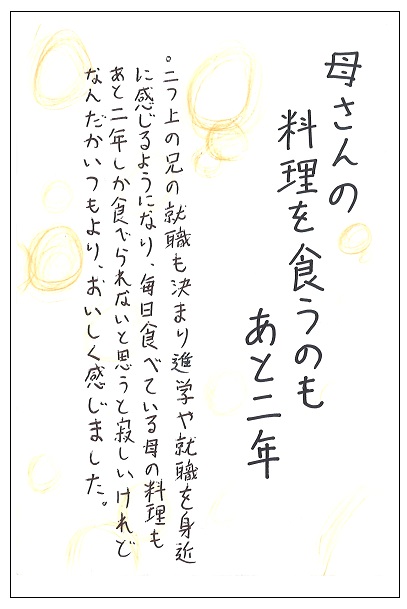 母さんの
料理を食うのも
あと二年
。二つ上の兄の就職も決まり進学や就職を身近
に感じるようになり、毎日食べている母の料理も
あと二年しか食べられないと思うと寂しいけれど
なんだかいつもより、おいしく感じました。